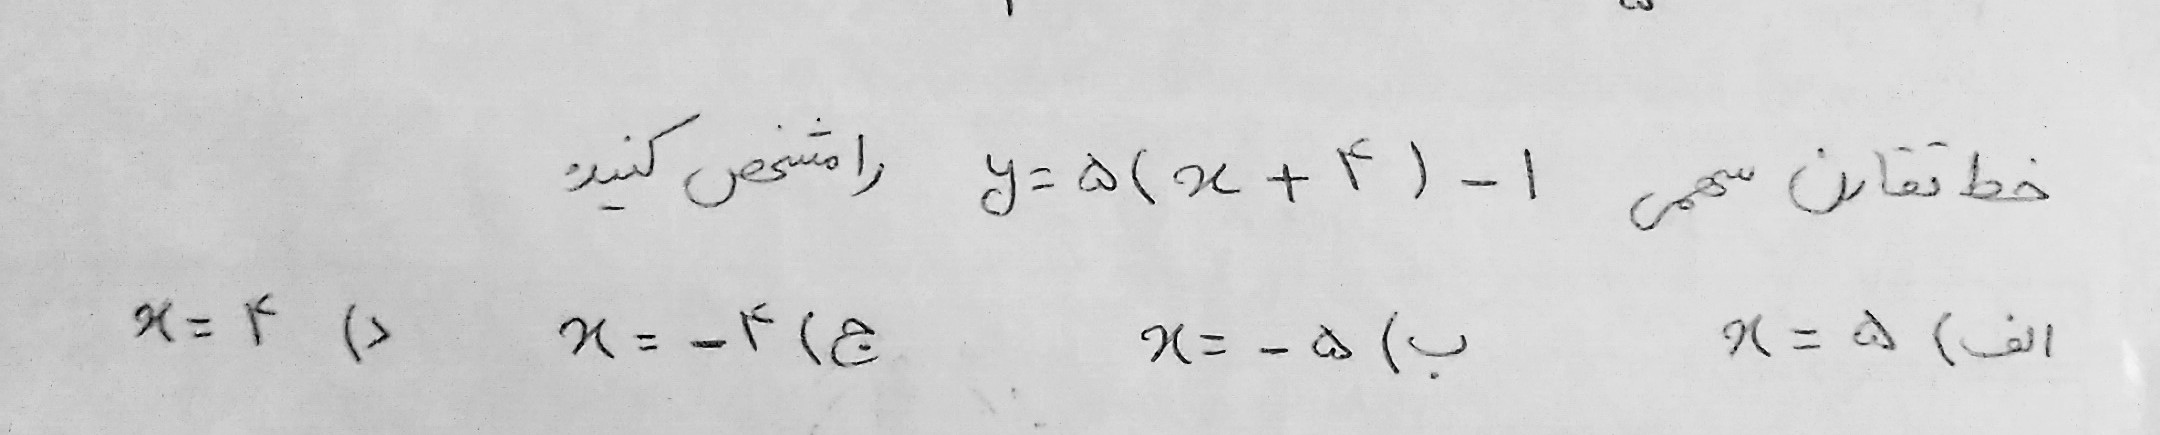 خط تقارن سهمی y=۵(x+۴)-۱ را مشخص کنید
الف) x=۵ ب) x=-۵ ج) x=-۴ د) x=۴